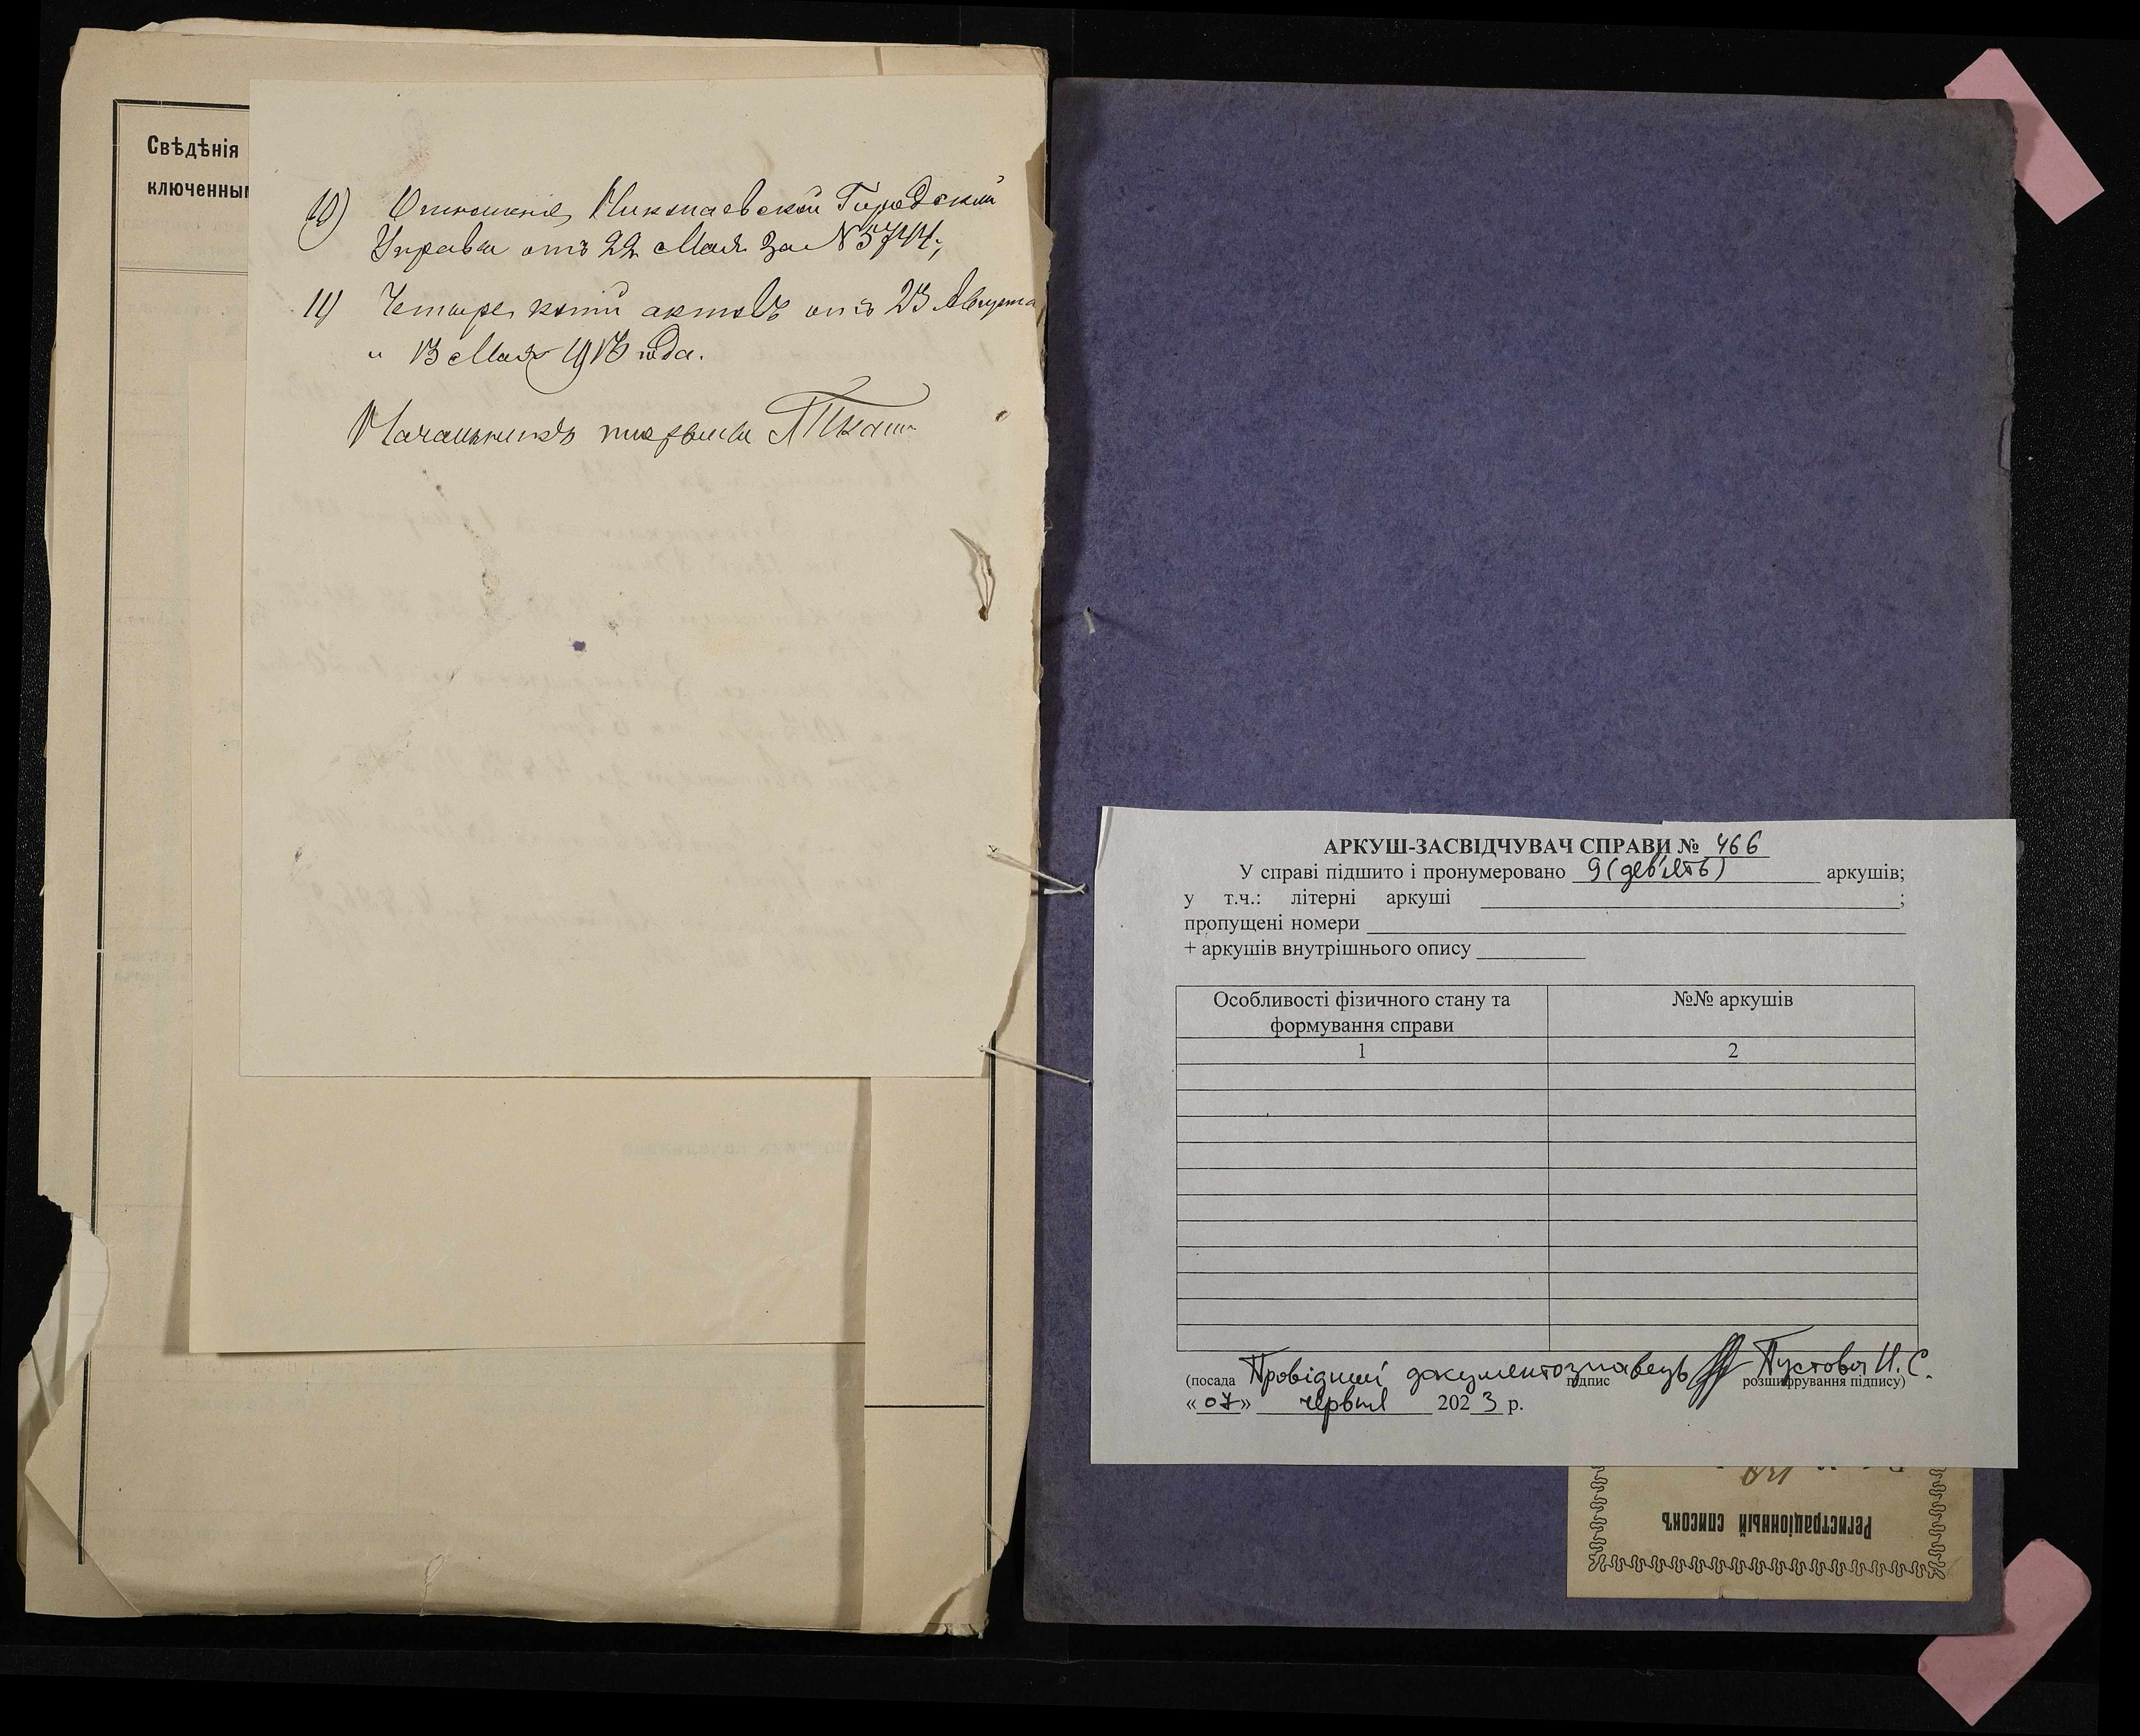 Свѣдѣнія
ключенным
10) Отношеніе Николаевской Городской
Управы отъ 22 Мая за № 5744;
11) Четыре копіи актовъ отъ 23 Августа
и 13 Мая года.
Начальникъ тюрьмы
АРКУШ-ЗАСВІДЧУВАЧ СПРАВИ № 466
У справі підшито і пронумеровано 9 (дев'ять) аркушів;
у т.ч.: літерні аркуші ;
пропущені номери
+ аркушів внутрішнього опису
Особливості фізичного стану та формування справи
№№ аркушів
1 2
Провідний документознавець Пустовіт И. С.
(посада підпис розшифрування підпису)
«07» червня 2023 р.
Регистраціонный списокъ